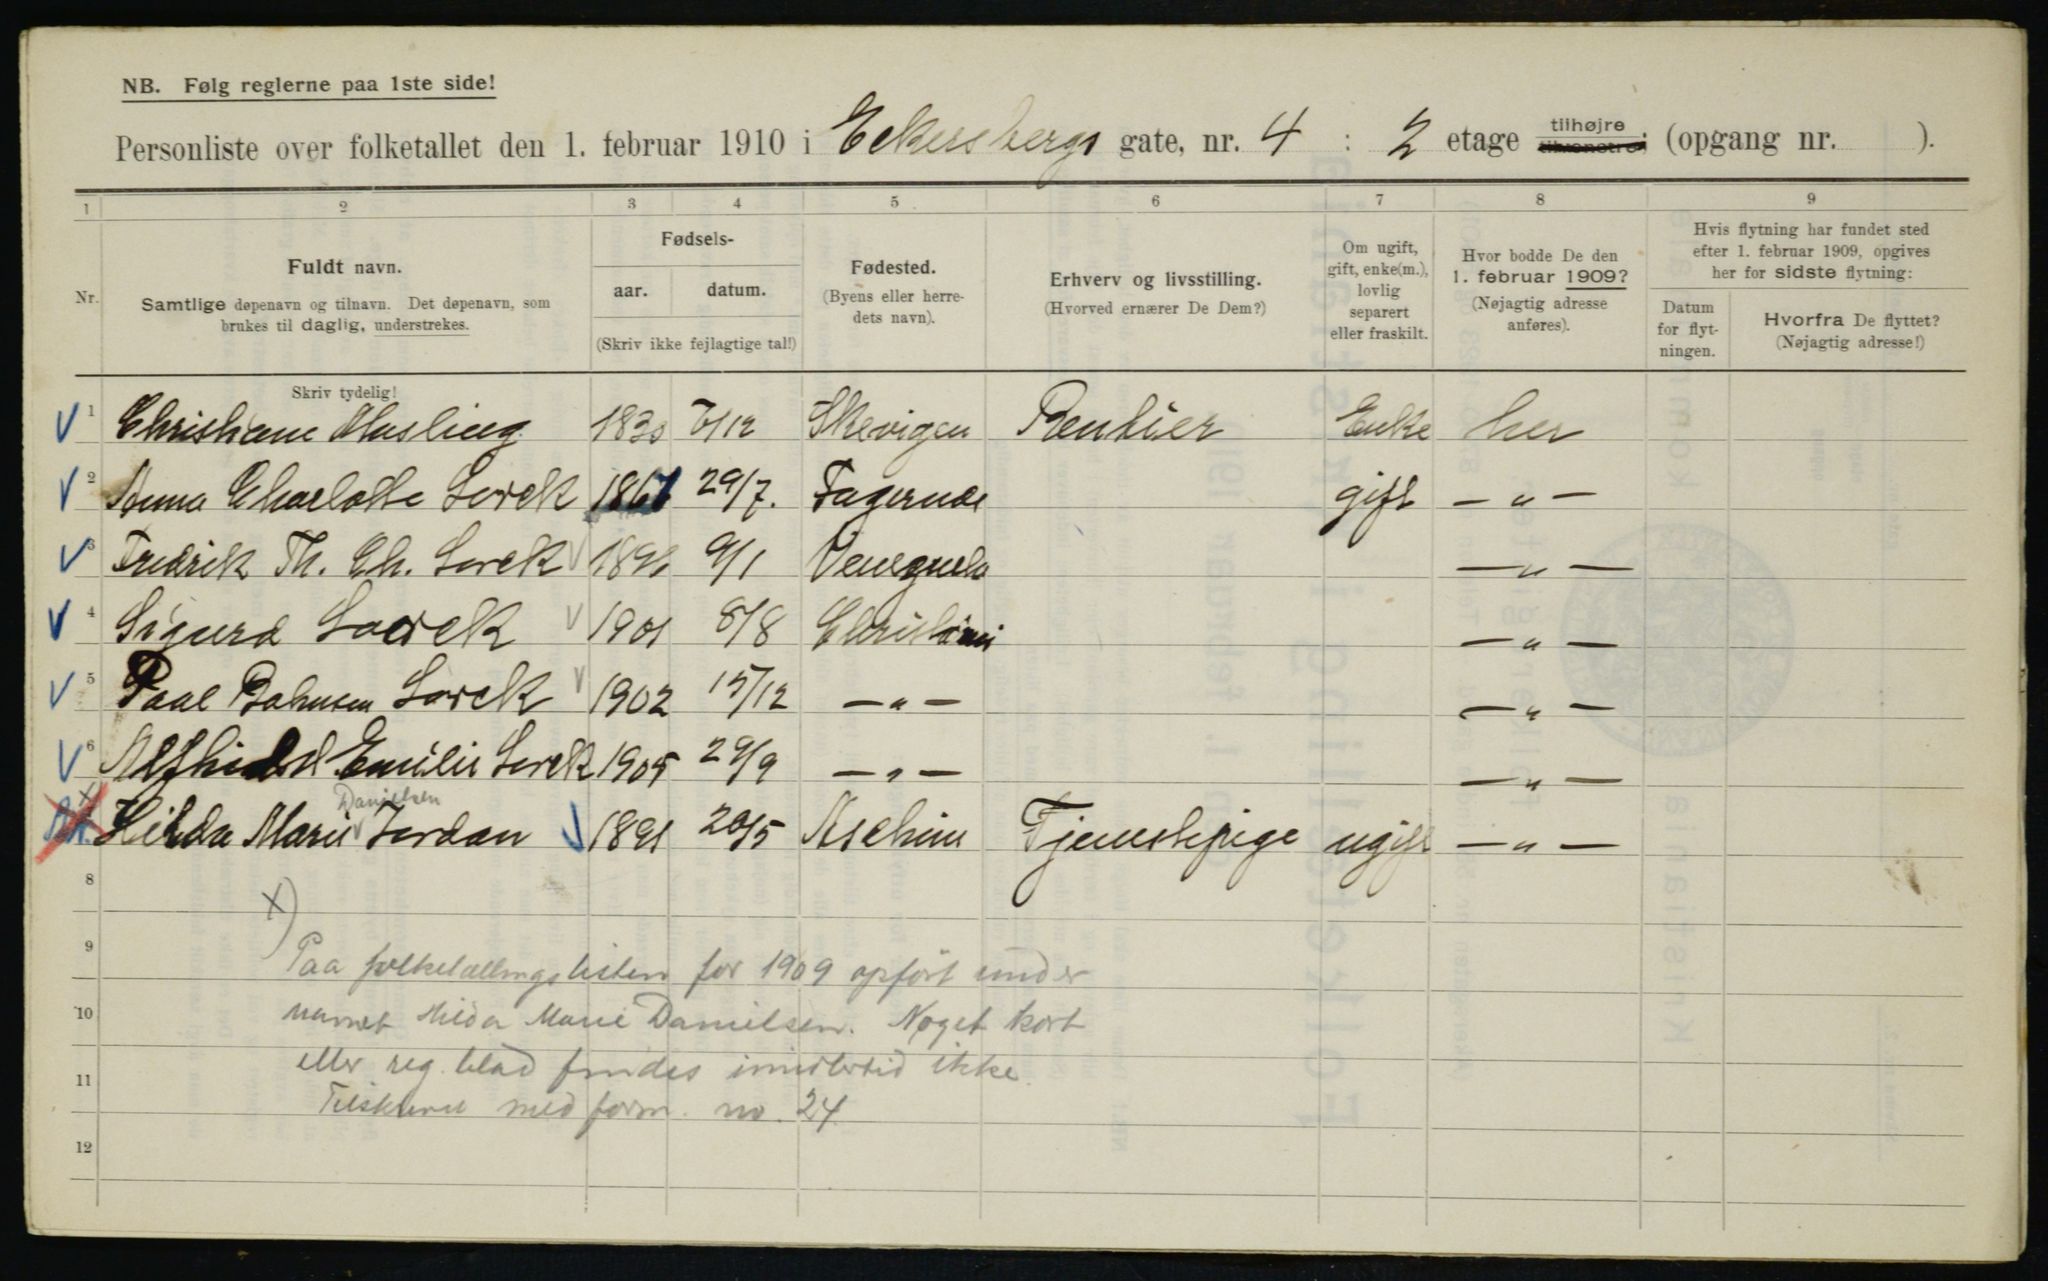 NB. Følg reglerne paa 1ste side!
Personliste over folketallet den 1. februar 1910 i Eckersbergs gate, nr. 4 : 2 etage tilhøjre tilvenstre; (opgang nr. ).
1 2 3 4 5 6 7 8 9
Nr.
Fuldt navn.
Samtlige døpenavn og tilnavn. Det døpenavn, som
brukes til daglig, understrekes.
Fødsels-
aar. datum.
(Skriv ikke fejlagtige tal!)
Fødested.
(Byens eller herre-
dets navn).
Erhverv og livsstilling.
(Hvorved ernærer De Dem?)
Om ugift,
gift, enke(m.),
lovlig
separert
eller fraskilt.
Hvor bodde De den
1. februar 1909?
(Nøjagtig adresse
anføres).
Hvis flytning har fundet sted
efter 1. februar 1909, opgives
her for sidste flytning:
Datum
for flyt-
ningen.
Hvorfra De flyttet?
(Nøjagtig adresse!)
Skriv tydelig!
1 Christiane Musling 1830 Rentier Enke her
2 Anna Charlotte Lorck 29/7. gift — " —
3 Fredrik Th. Ch. Lorck 9/1 Venezuela — " —
4 Sigurd Lorck 1901 8/8 Christiania — " —
5 Paal Bahnsen Lorck 1902 15/12 — " — — " —
6 Alfhild Emilie Lorck 1905 29/9 — " — — " —
Danielsen
Hilda Marie Jordan 1891 20/5 Aschim Tjenestepige ugift — " —
8
x)
9 Paa folketællingslisten for 1909 opført under
10 navnet Hilda Marie Danielsen. Noget kort
eller reg. blad findes imidlertid ikke.
11 Tilskrevet med form. no. 24
12